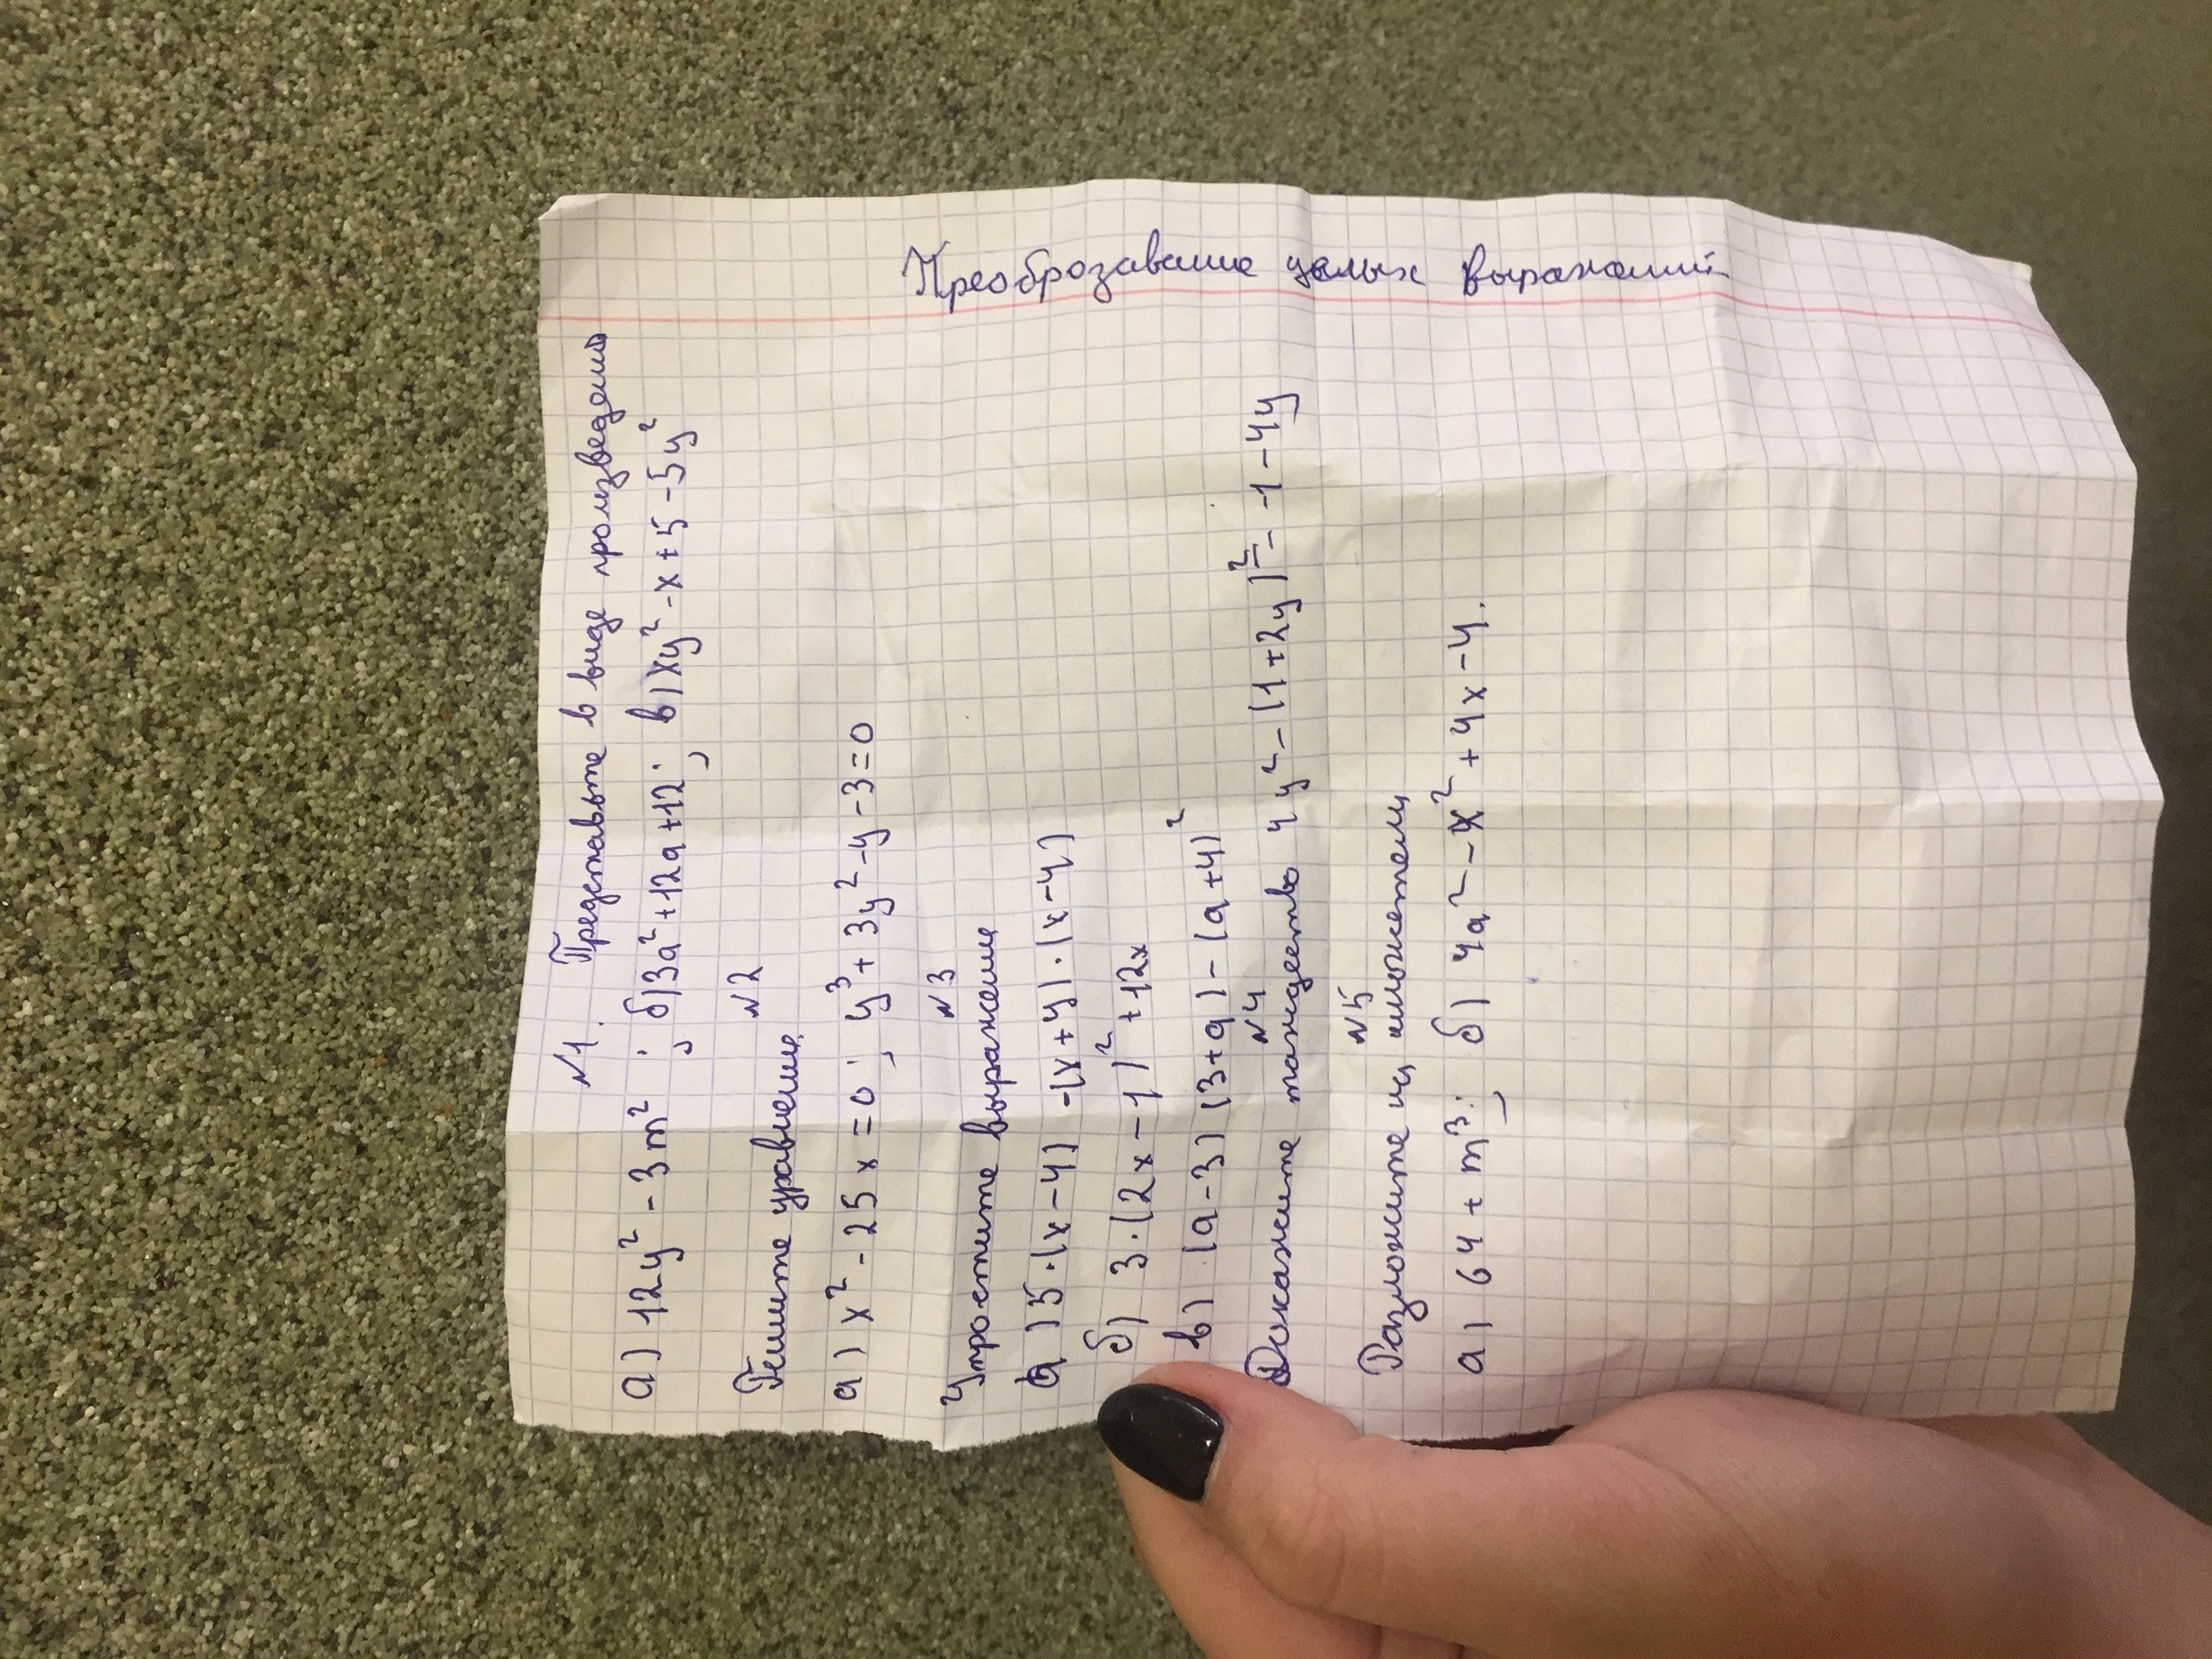 Преоброзавание целых выражений
N1. Представьте в виде произведения
а) 12y² - 3m² ; б) 3a² + 12a + 12 ; в) xy² - x + 5 - 5y²
N2
Решите уравнения
а) x² - 25x = 0 ; y³ + 3y² - y - 3 = 0
N3
Упростите выражение
а) 5·(x - 4) - (x + 4)·(x - 4)
б) 3·(2x - 1)² + 12x
в) (a - 3)(3 + a) - (a + 4)²
N4
Докажите тождество 4y² - (1 + 2y)² = -1 - 4y
N5
Разложите на множители
а) 64 + m³ ; б) 4a² - x² + 4x - 4.